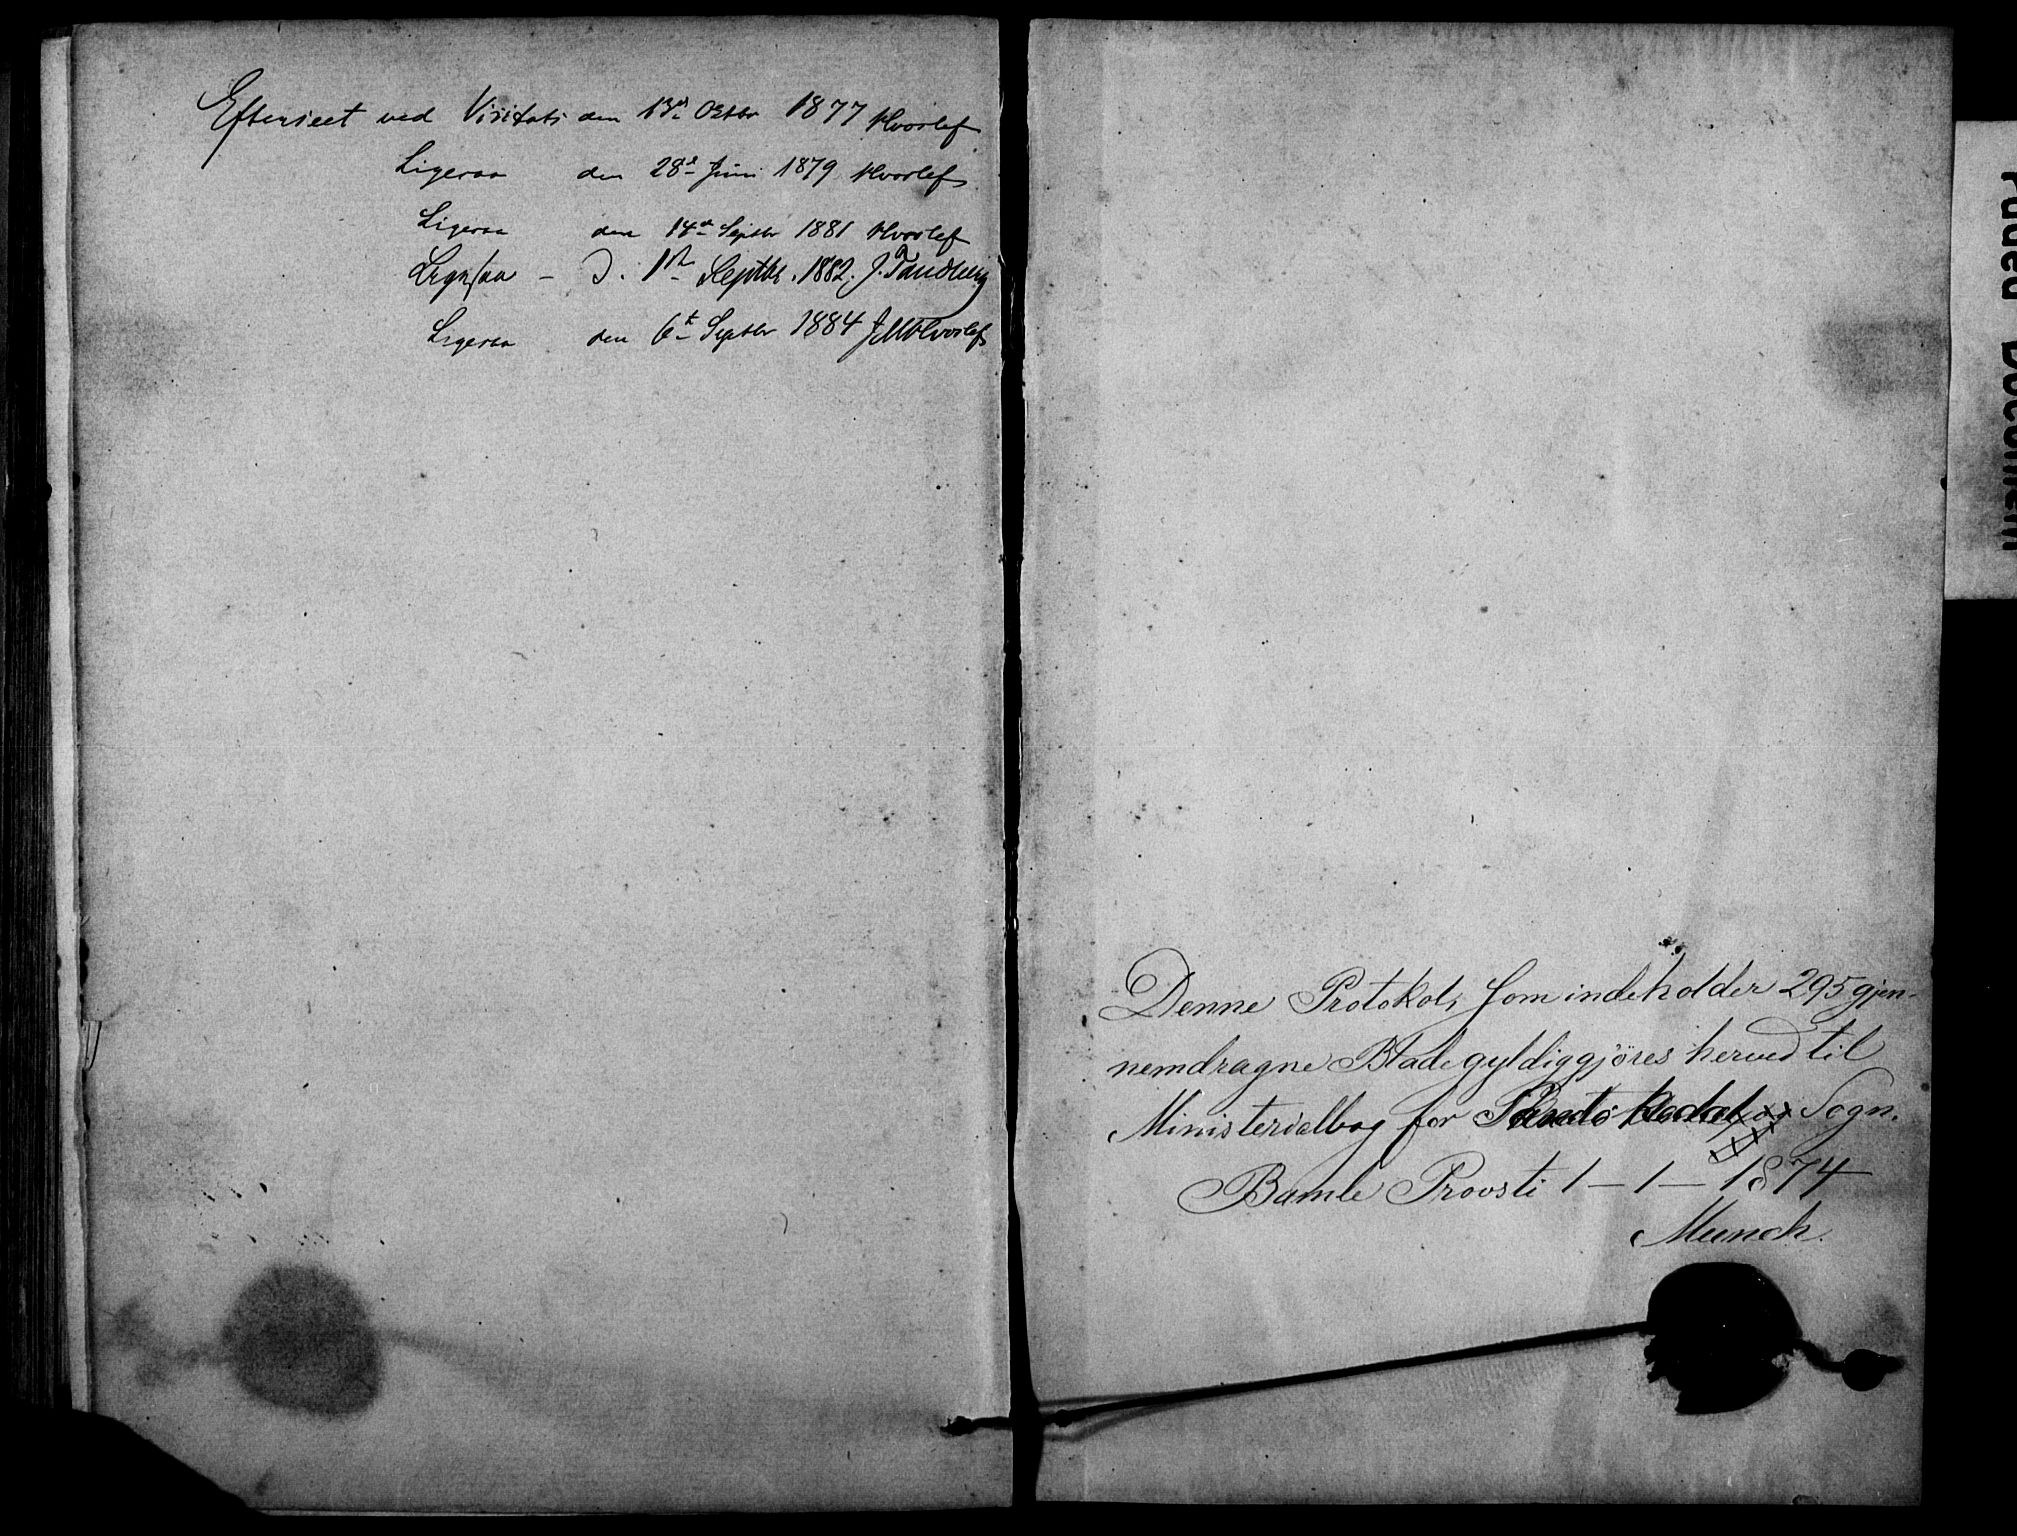 Efterseet ved Visitats den 13de Octbr 1877 Hvoslef
Ligesaa den 28de Juni 1879 Hvoslef
Ligesaa den 14de Septbr 1881 Hvoslef
Ligesaa - D. 1ste Septbr. 1882. J. Tandberg
Ligesaa den 6te Septbr 1884 J M Hvoslef
Denne Protokol, som indeholder 295 gjen-
nemdragne Blade gyldiggjöres herved til
Ministerialbog for Sogn.
Bamle Provsti 1 - 1 - 1874
Munch.
Faded Document